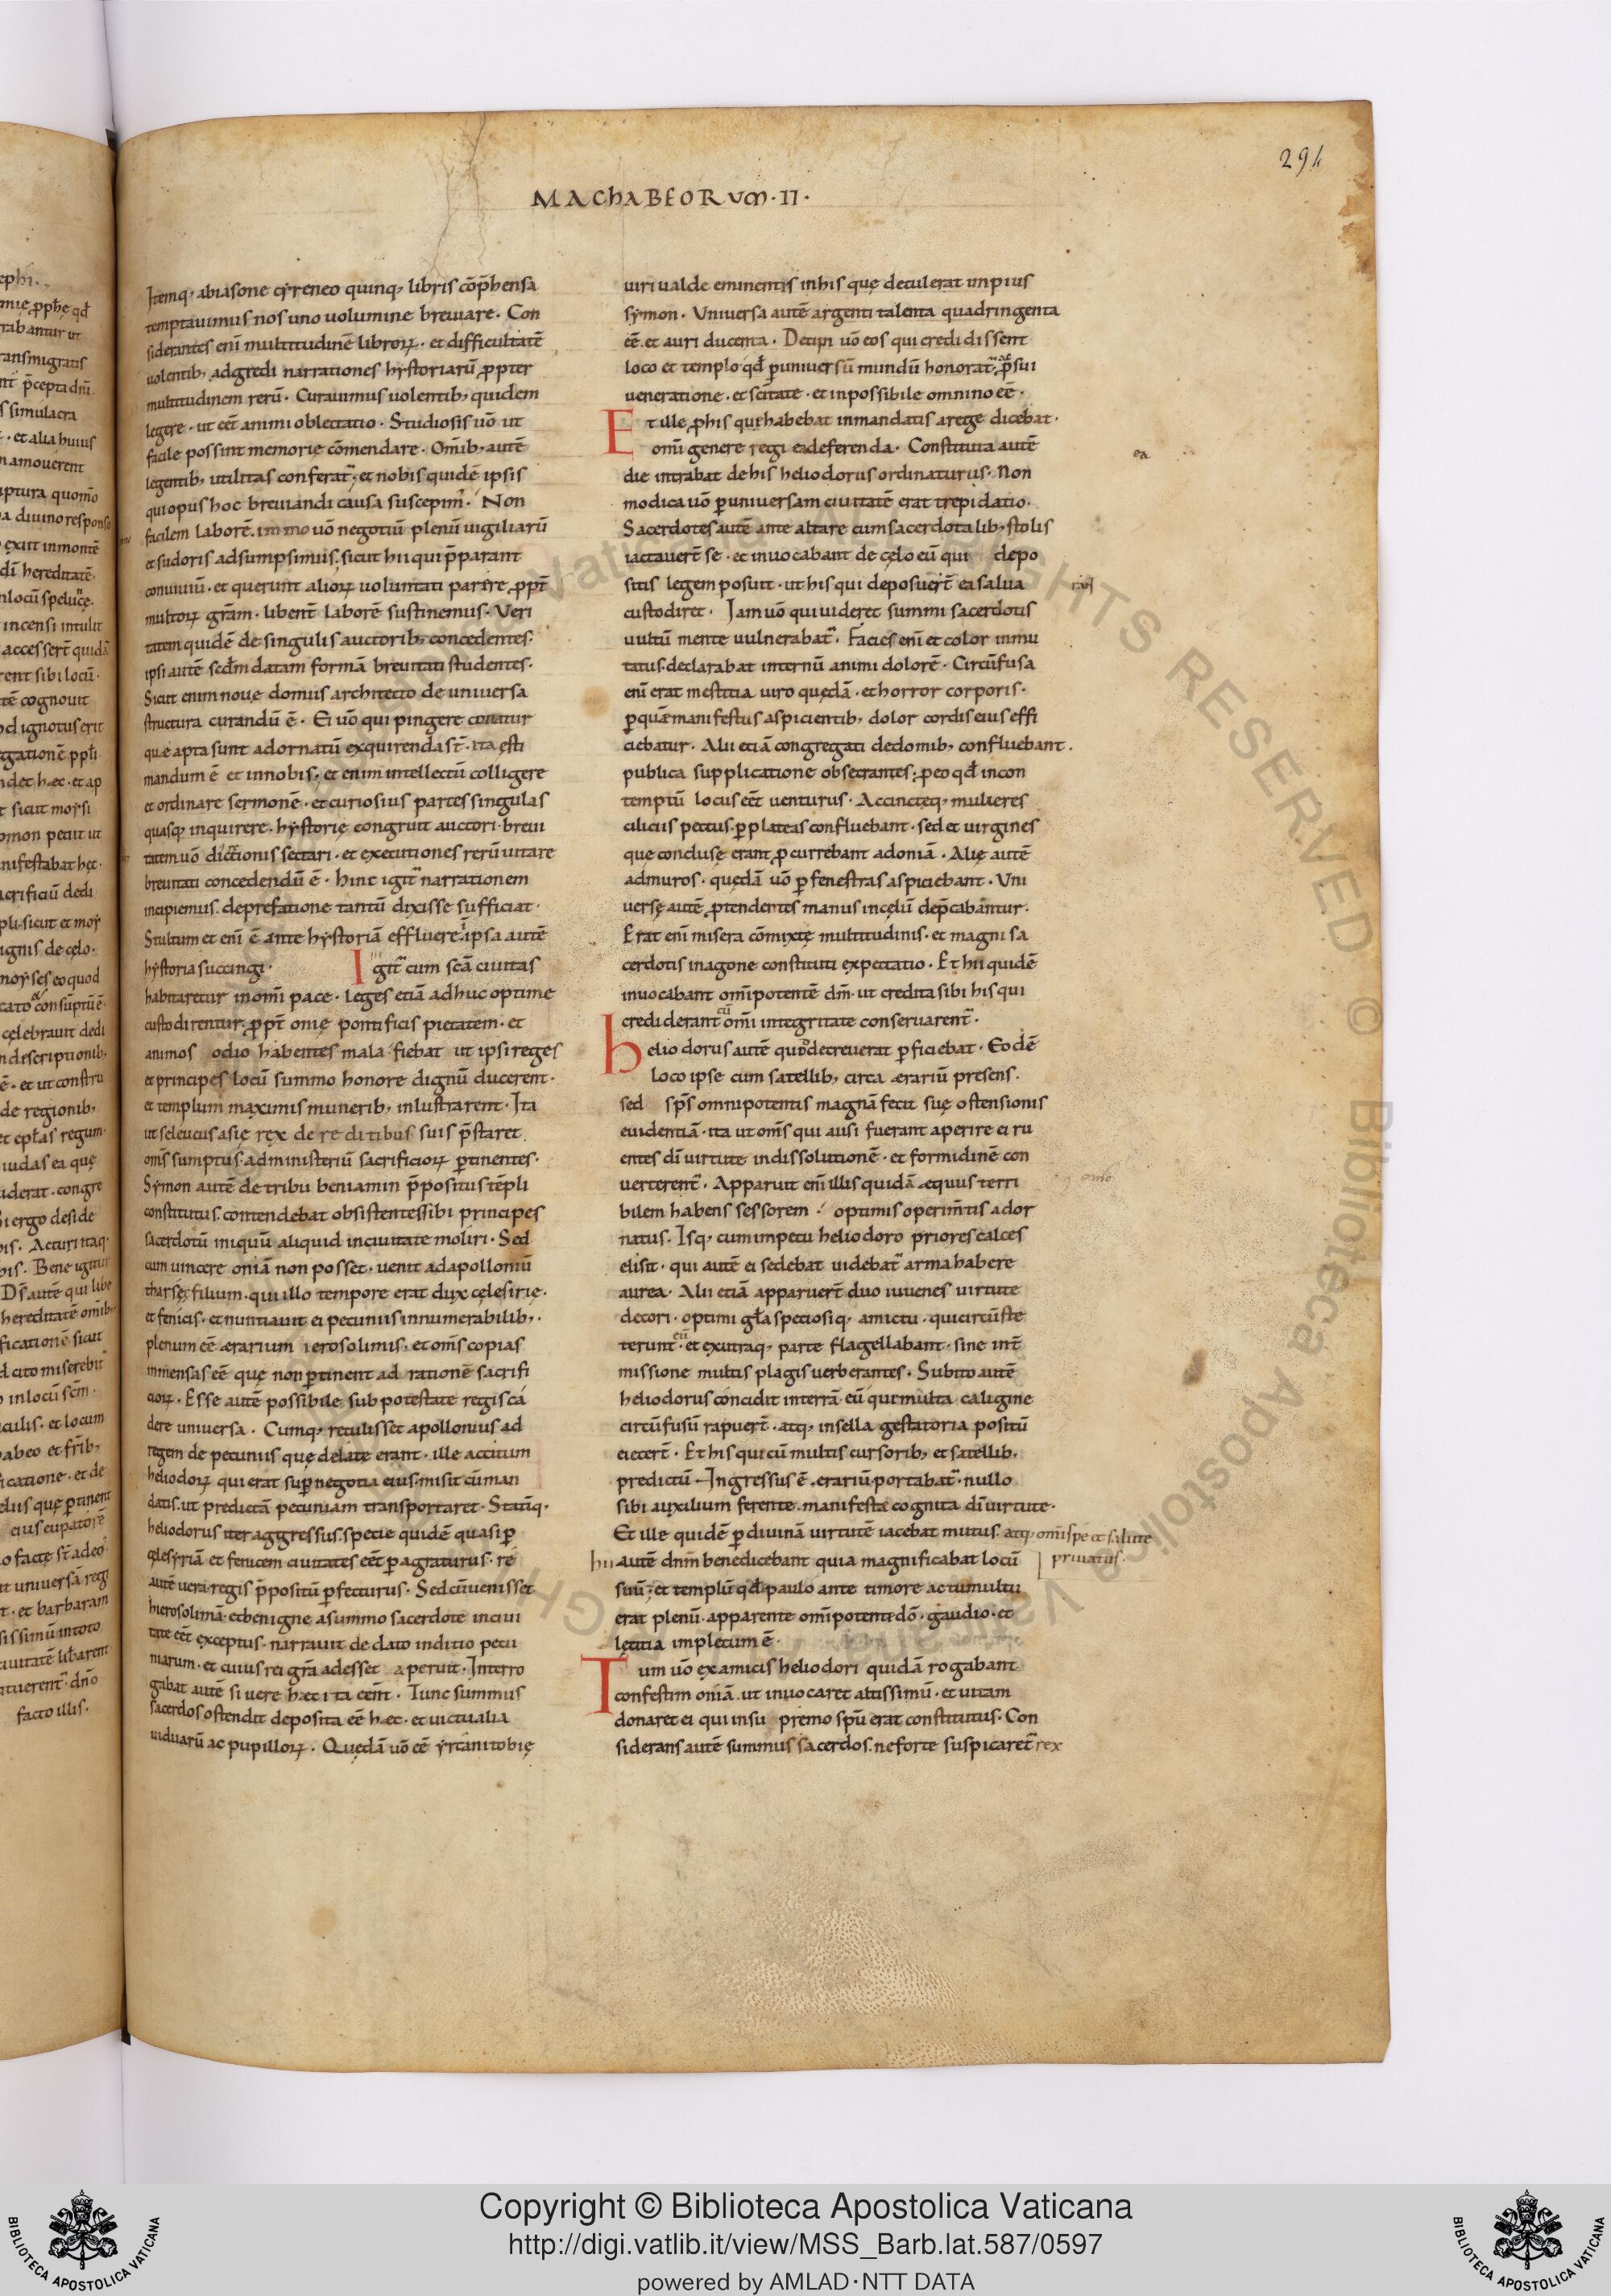 294
MAChABEORUM·II·
Itemq; abiasone cẏreneo quinq; libris cōp̄hensa
temptauimus nos uno uolumine breuiare. Con
siderantes enī multitudinē libroꝝ. et difficultatē
uolentib; adgredi narrationes hẏstoriarū ꝓpter
multitudinem rerū. Curauimus uolentib; quidem
legere. ut eēt animi oblectatio. Studiosis uō ut
facile possint memorie cōmendare. Om̄ib; autē
legentib; utilitas conferat᷑. et nobis quidē ipsis
qui opus hoc breuiandi causa suscepim᷑. Non
facilem laborē. immo uō negotiū plenū uigiliarū
et sudoris adsumpsimus. sicut hii qui p̄parant
conuiuiū. et querunt alioꝝ uoluntati parere ꝓpt̄
multoꝝ grām. libent̄ laborē sustinemus. Veri
tatem quidē de singulis auctorib; concedentes.
ipsi autē sed̄m datam formā breuitati studentes.
Sicut enim nouę domus architecto de uniuersa
structura curandū ē. Ei uō qui pingere conatur
quae apta sunt ad ornatū exquirenda st̄. ita ęsti
mandum ē et in nobis. et enim intellectū colligere
et ordinare sermonē. et curiosius partes singulas
quasq; inquirere. hẏstorię congruit auctori. breui
tatem uō dictionis sectari. et executiones rerū uitare
breuitati concedendū ē. hinc igit᷑ narrationem
incipiemus. de prefatione tantū dixisse sufficiat.
Stultum et enī ē ante hẏstoriā effluere. ipsa autē
hẏstoria succingi. Igit᷑ cum scā ciuitas
habitaretur in om̄i pace. leges etiā adhuc optime
custodirentur. ꝓpt̄ onię pontificis pietatem. et
animos odio habentes mala fiebat ut ipsi reges
et principes locū summo honore dignū ducerent.
et templum maximis munerib; inlustrarent. Ita
ut seleucus asię rex de reditibus suis p̄staret
om̄s sumptus. ad ministeriū sacrificioꝝ ꝑtinentes.
Sẏmon autē de tribu beniamin p̄positus tēpli
constitutus. contendebat obsistente sibi principes
sacerdotū iniquū aliquid in ciuitate moliri. Sed
cum uincere oniā non posset. uenit ad apolloniū
tharsęę filium. qui illo tempore erat dux cęlesirię.
et fenicis. et nuntiauit ei pecuniis innumerabilib;.
plenum eē ærarium ierosolimis. et om̄s copias
inmensas eē quę non ꝑtinent ad rationē sacrifi
cioꝝ. Esse autē possibile sub potestate regis ca
dere uniuersa. Cumq; retulisset apollonius ad
regem de pecuniis quę delatę erant. ille accitum
heliodoꝝ qui erat suꝑ negotia eius. misit cū man
datis. ut predictā pecuniam transportaret. Statīq;
heliodorus iter aggressus. specie quidē quasi ꝑ
cęlesẏriā et fenicem ciuitates eēt ꝑagraturus. re
autē uera. regis p̄positū ꝑfecturus. Sed cū uenisset
hierosolimā. et benigne a summo sacerdote in ciui
tate eēt exceptus. narrauit de dato inditio pecu
niarum. et cuius rei grā adesset aperuit. Interro
gabat autē si uere hæc ita eēnt. Tunc summus
sacerdos ostendit deposita eē hæc. et uictualia
uiduarū ac pupilloꝝ. Quędā uō eē ẏrcani tobię
uiri ualde eminentis in his quę detulerat impius
sẏmon. Vniuersa autē argenti talenta quadringenta
eē. et auri ducenta. Decipi uō eos qui credidissent
loco et templo qđ ꝑ uniuersū mundū honorat᷑. ꝓ sui
ueneratione. et scītate. et inpossibile omnino eē.
Et ille ꝓ his quę habebat in mandatis a rege dicebat.
om̄i genere regi ea deferenda. Constituta autē
ea
die intrabat de his heliodorus ordinaturus. Non
modica uō ꝑ uniuersam ciuitatē erat trepidatio.
Sacerdotes autē ante altare cum sacerdotalib; stolis
iactauert̄ se. et inuocabant de cęlo eū qui depo
sitis legem posuit. ut his qui deposuert̄ ea salua
custodiret. Iam uō qui uideret summi sacerdotis
uultū mente uulnerabat᷑. Facies enī et color inmu
tatus. declarabat internū animi dolorē. Circūfusa
enī erat mestitia uiro quędā. et horror corporis.
ꝑ quæ manifestus aspicientib; dolor cordis eius effi
ciebatur. Alii etiā congregati de domib; confluebant.
publica supplicatione obsecrantes. ꝓ eo qđ in con
temptū locus eēt uenturus. Accinctęq; mulieres
ciliciis pectus. ꝑ plateas confluebant. sed et uirgines
que conclusę erant ꝓcurrebant ad oniā. Alię autē
ad muros. quędā uō ꝑ fenestras aspiciebant. Vni
uersę autē ꝓtendentes manus in cęlū dep̄cabantur.
Erat enī misera cōmixtę multitudinis. et magni sa
cerdotis in agone constituti expectatio. Et hii quidē
inuocabant om̄ipotentē dm̄. ut credita sibi his qui
crediderant cū om̄i integritate conseruarent᷑.
heliodorus autē quod decreuerat ꝑficiebat. Eodē
loco ipse cum satellib; circa ærariū presens.
sed sp̄s omnipotentis magnā fecit suę ostensionis
euidentiā. ita ut om̄s qui ausi fuerant aperire ei ru
entes dī uirtute in dissolutionē. et formidinē con
uerterent᷑. Apparuit enī illis quidā æquus terri
bilem habens sessorem. optimis operim̄tis ador
natus. Isq; cum impetu heliodoro priores calces
elisit. qui autē ei sedebat uidebat᷑ arma habere
aurea. Alii etiā apparuert̄ duo iuuenes uirtute
decori. optimi gl̄a speciosiq; amictu. qui circūste
terunt eū. et ex utraq; parte flagellabant. sine int̄
missione multis plagis uerberantes. Subito autē
heliodorus concidit in terrā. eū qui multa caligine
circūfusū rapuert̄. atq; in sella gestatoria positū
eiecert̄. Et his qui cū multis cursorib; et satellib;
predictū ingressus ē ærariū. portabat᷑. nullo
sibi auxilium ferente. manifesta cognita dī uirtute.
Et ille quidē ꝑ diuinā uirtutē iacebat mutus. atq; om̄i spe et salute
priuatus.
hii autē dnm̄ benedicebant quia magnificabat locū
suū. et templū qđ paulo ante timore ac tumultu
erat plenū. apparente om̄ipotenti dō. gaudio. et
lętitia impletum ē.
Tum uō ex amicis heliodori quidā rogabant
confestim oniā. ut inuocaret altissimū. et uitam
donaret ei qui in supremo sp̄u erat constitutus. Con
siderans autē summus sacerdos. ne forte suspicaret᷑ rex
Copyright © Biblioteca Apostolica Vaticana
http://digi.vatlib.it/view/MSS_Barb.lat.587/0597
powered by AMLAD·NTT DATA
BIBLIOTECA APOSTOLICA VATICANA
BIBLIOTECA APOSTOLICA VATICANA